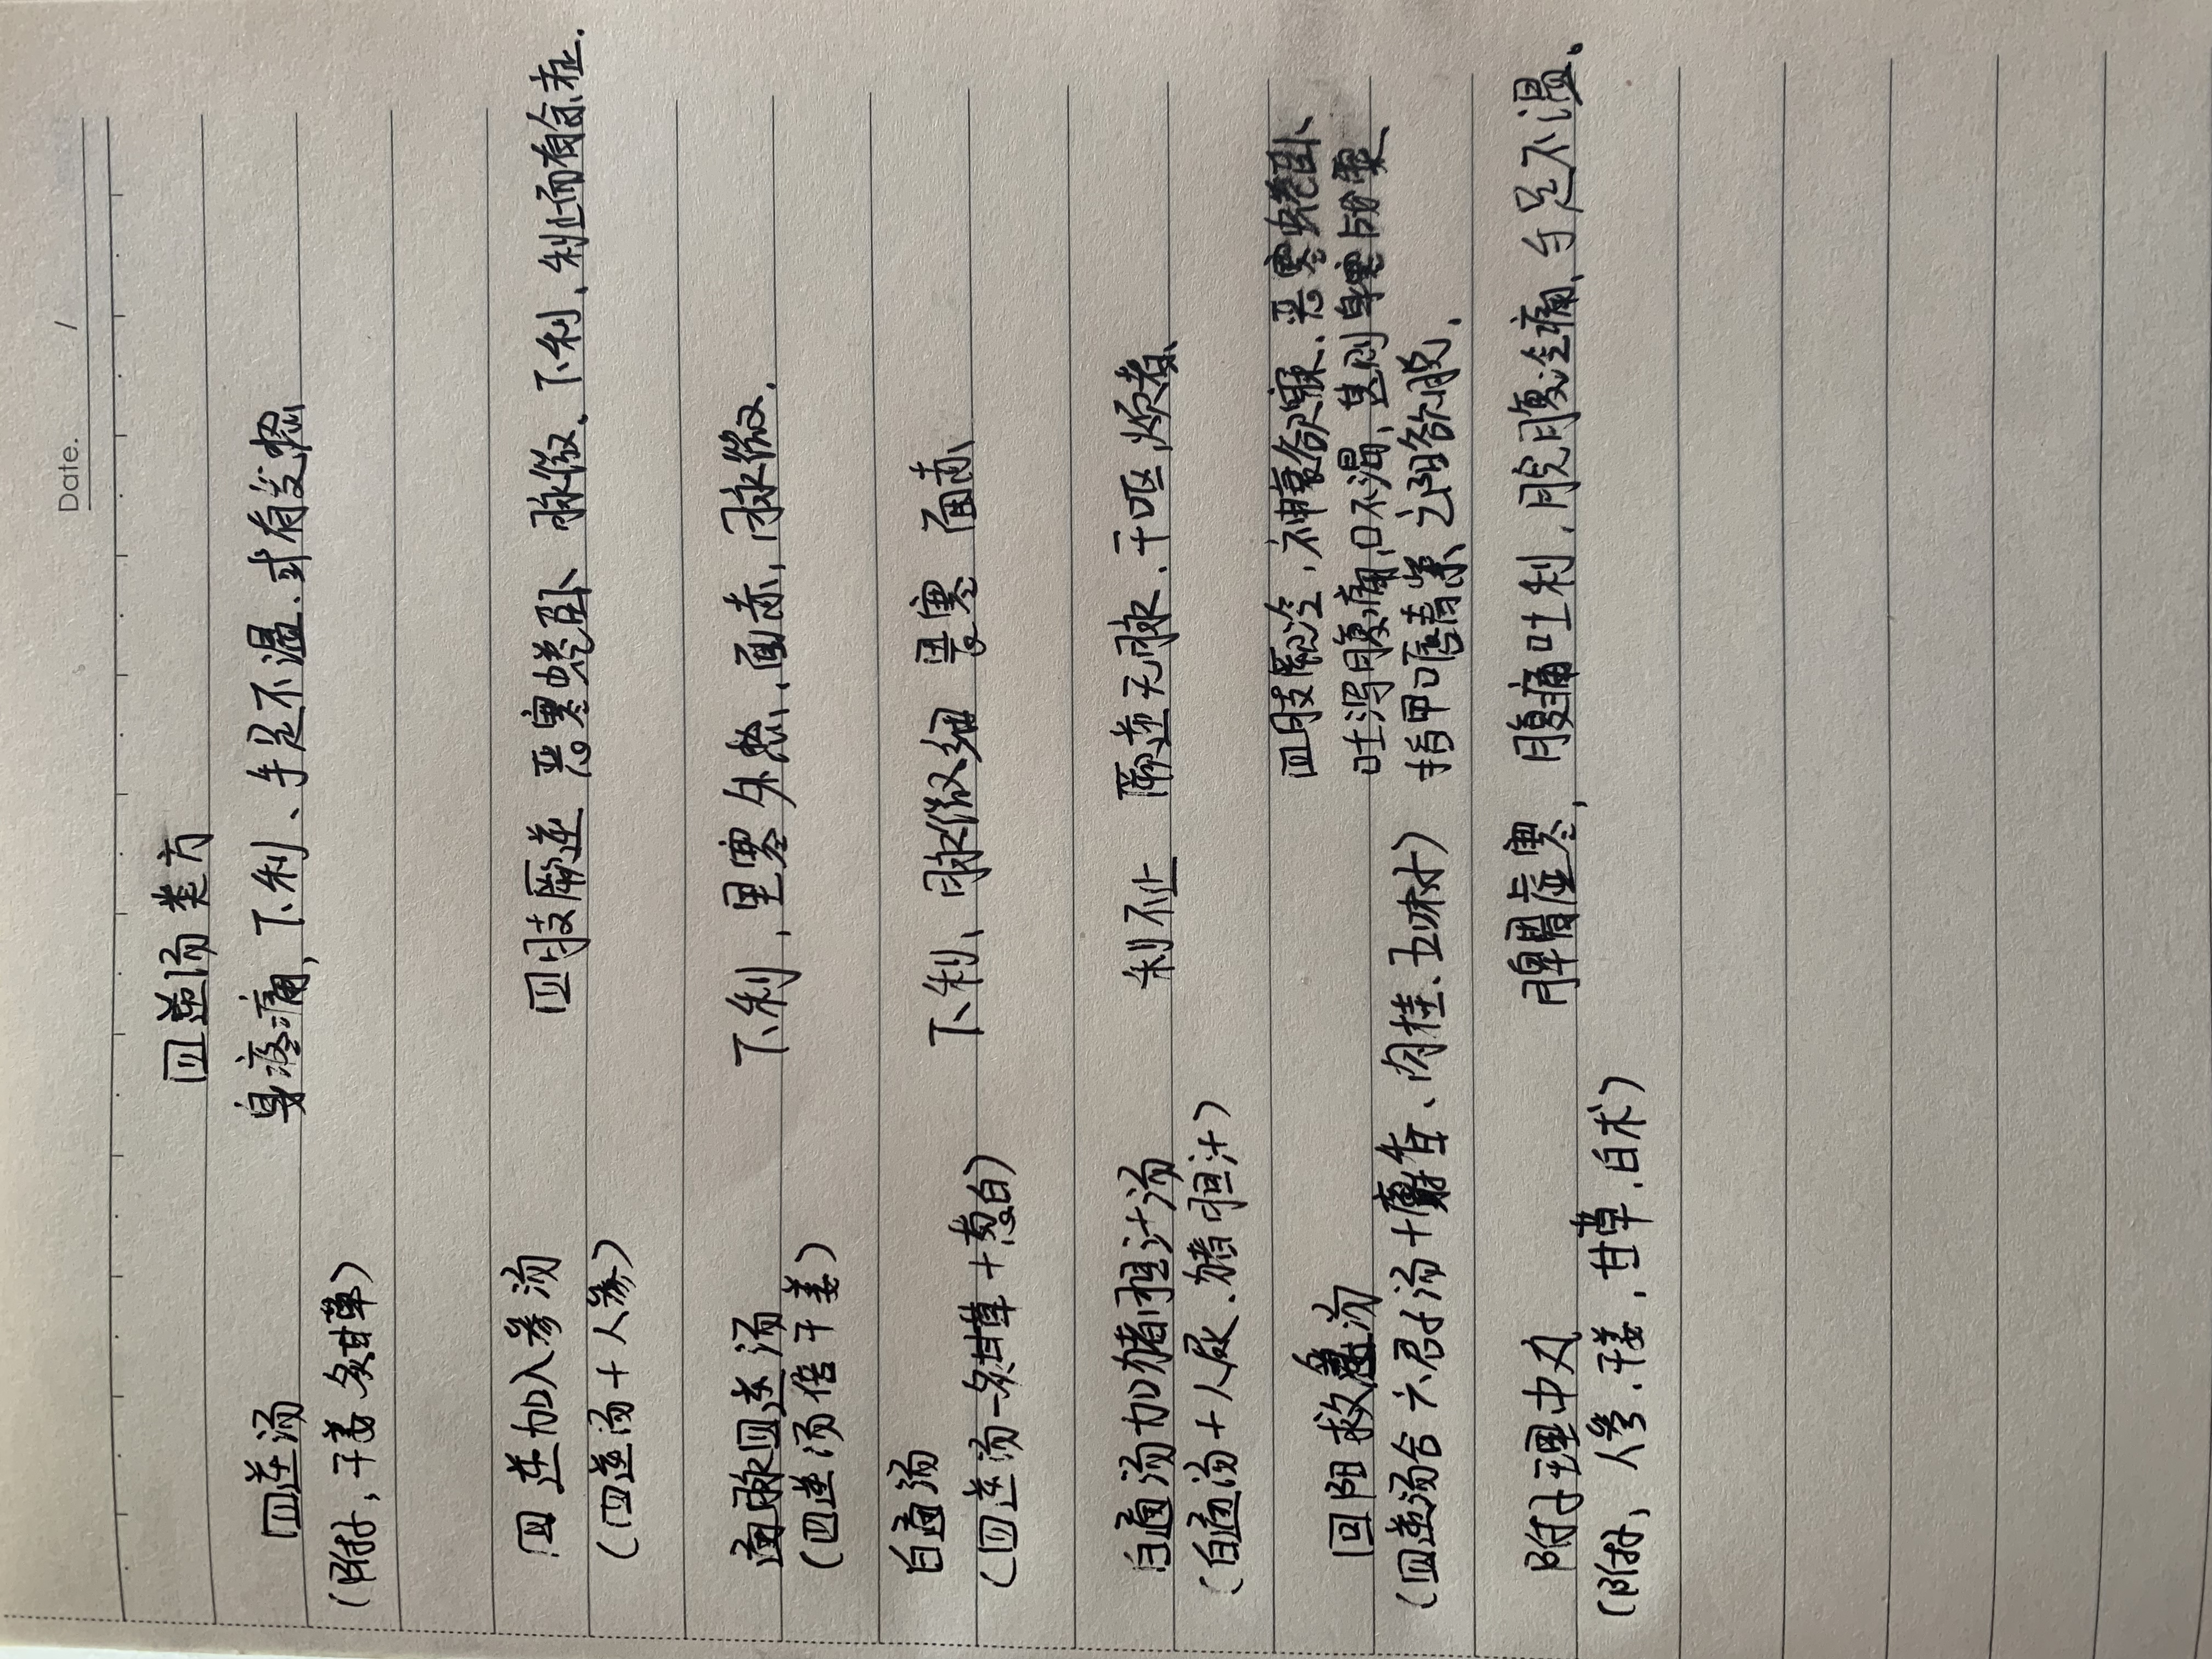 Date. /
四逆汤类方
四逆汤 身疼痛,下利、手足不温.或有发热
(附子,干姜.炙甘草)
四逆加人参汤 四肢厥逆 恶寒蜷卧 脉微、下利、利止而有余证.
(四逆汤+人参)
通脉四逆汤 下利,里寒外热、面赤,脉微.
(四逆汤倍干姜)
白通汤 下利、脉微细 恶寒 面赤
(四逆汤-炙甘草+葱白)
白通汤加猪胆汁汤 利不止 厥逆无脉.干呕.烦者、
(白通汤+人尿.猪胆汁)
回阳救急汤 四肢厥冷,神衰欲寐.恶寒蜷卧
吐泻腹痛,口不渴、甚则身寒战栗
(四逆汤合六君子汤+麝香、肉桂、五味子) 指甲口唇青紫、亡阳欲脱.
附子理中丸 脾胃虚寒,腹痛吐利,脘腹冷痛、手足不温。
(附子,人参.干姜.甘草.白术)